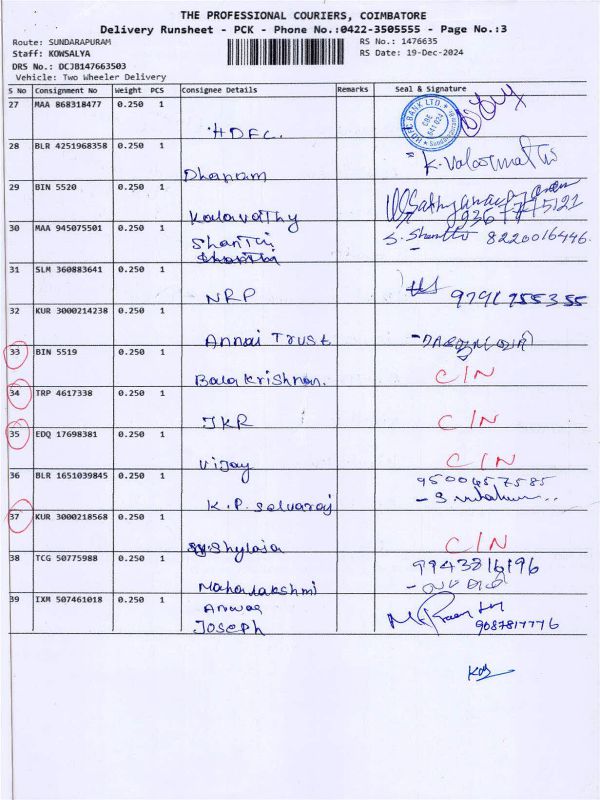 THE PROFESSIONAL COURIERS, COIMBATORE
Delivery Runsheet - PCK - Phone No.:0422-3505555 - Page No.:3
Route: SUNDARAPURAM
Staff: KOWSALYA
DRS No.: DCJB147663503
Vehicle: Two Wheeler Delivery
RS No.: 1476635
RS Date: 19-Dec-2024
S No Consignment No Weight PCS Consignee Details Remarks Seal & Signature
27 MAA 868318477 0.250 1
HDFC.
HDFC BANK LTD.
CBE
28 BLR 4251968358 0.250 1
Dharam
29 BIN 5520 0.250 1
Kalavathy
9367775121
30 MAA 945075501 0.250 1
Shanthi
S. Shanthi 8220016446.
31 SLM 360883641 0.250 1
NRP
9791755355
32 KUR 3000214238 0.250 1
Annai Trust
33 BIN 5519 0.250 1
Balakrishnan.
C/N
34 TRP 4617338 0.250 1
JKR
C/N
35 EDQ 17698381 0.250 1
Vijay
C/N
36 BLR 1651039845 0.250 1
K.P. Selvaraj
9500457585
37 KUR 3000218568 0.250 1
Shylaja
C/N
38 TCG 50775988 0.250 1
Mahalakshmi
9943816196
39 IXM 507461018 0.250 1
Anwar
Joseph
9087817776